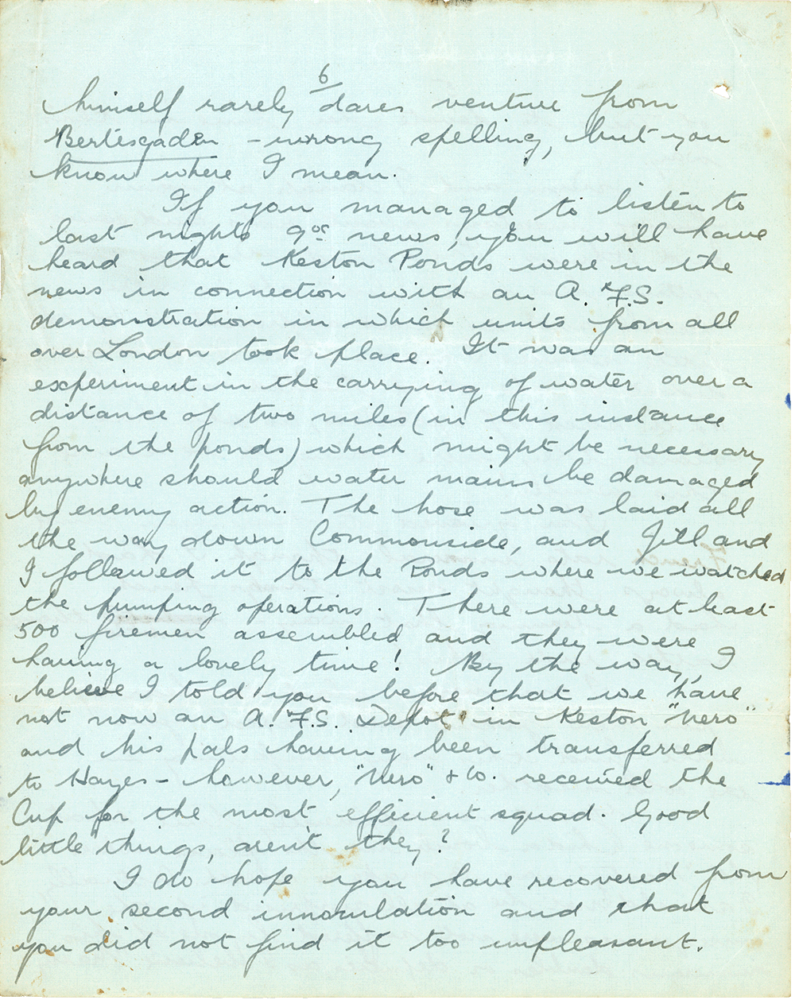 6
himself rarely dares venture from
Bertesgaden - wrong spelling, but you
know where I mean.
If you managed to listen to
last nights 9oc news, you will have
heard that Keston Ponds were in the
news in connection with an A.F.S.
demonstration in which units from all
over London took place. It was an
experiment in the carrying of water over a
distance of two miles (in this instance
from the ponds) which might be necessary
anywhere should water mains be damaged
by enemy action. The hose was laid all
the way down Commonside, and Jill and
I followed it to the Ponds where we watched
the pumping operations. There were at least
500 firemen assembled and they were
having a lovely time! By the way, I
believe I told you before that we have
not now an A.F.S. Depot in Keston, "Nero"
and his pals having been transferred
to Hayes - however, "Nero" & Co. received the
Cup for the most efficient squad. Good
little things, aren't they?
I do hope you have recovered from
your second innoculation and that
you did not find it too unpleasant.